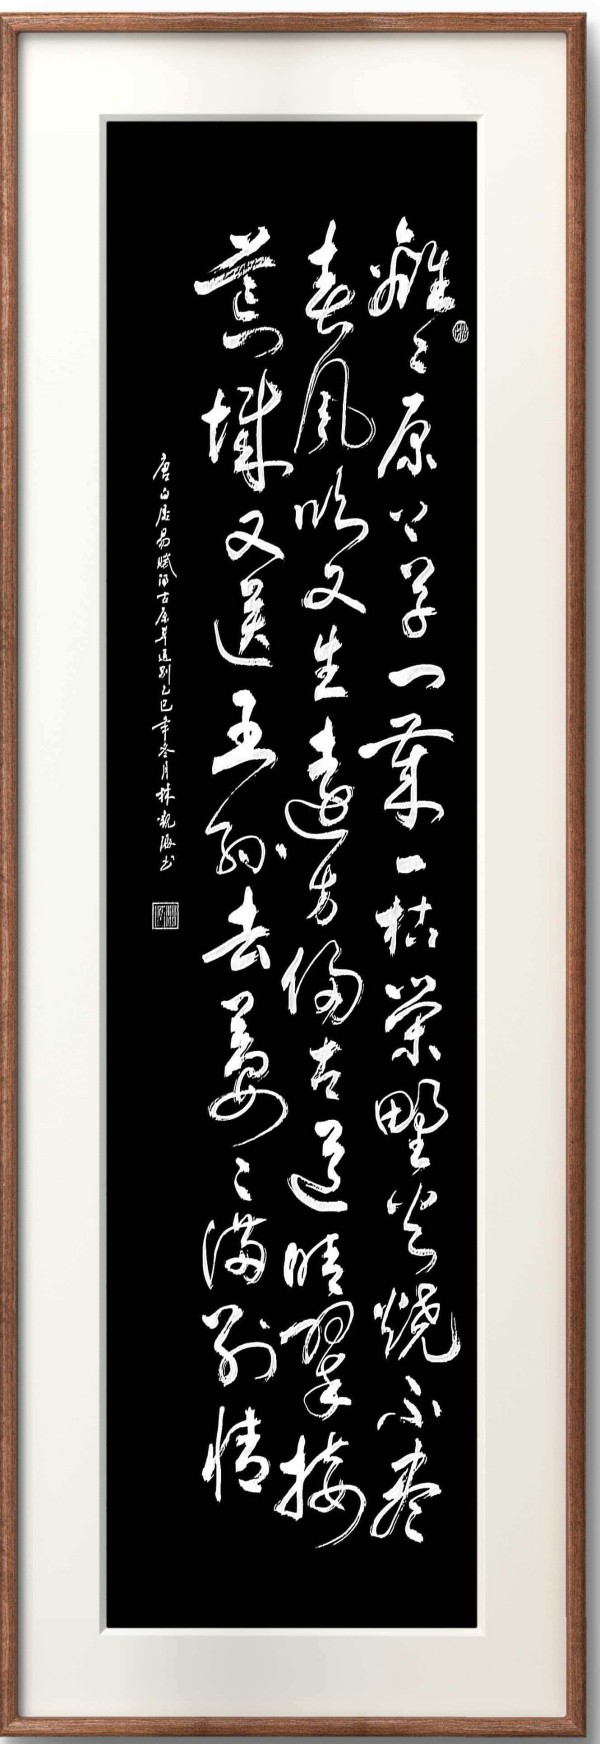 離〻原上草一歲一枯榮野火燒不盡
春風吹又生遠芳侵古道晴翠接
荒城又送王孫去萋〻滿別情
唐白居易賦得古原草送別乙巳年冬月林海书